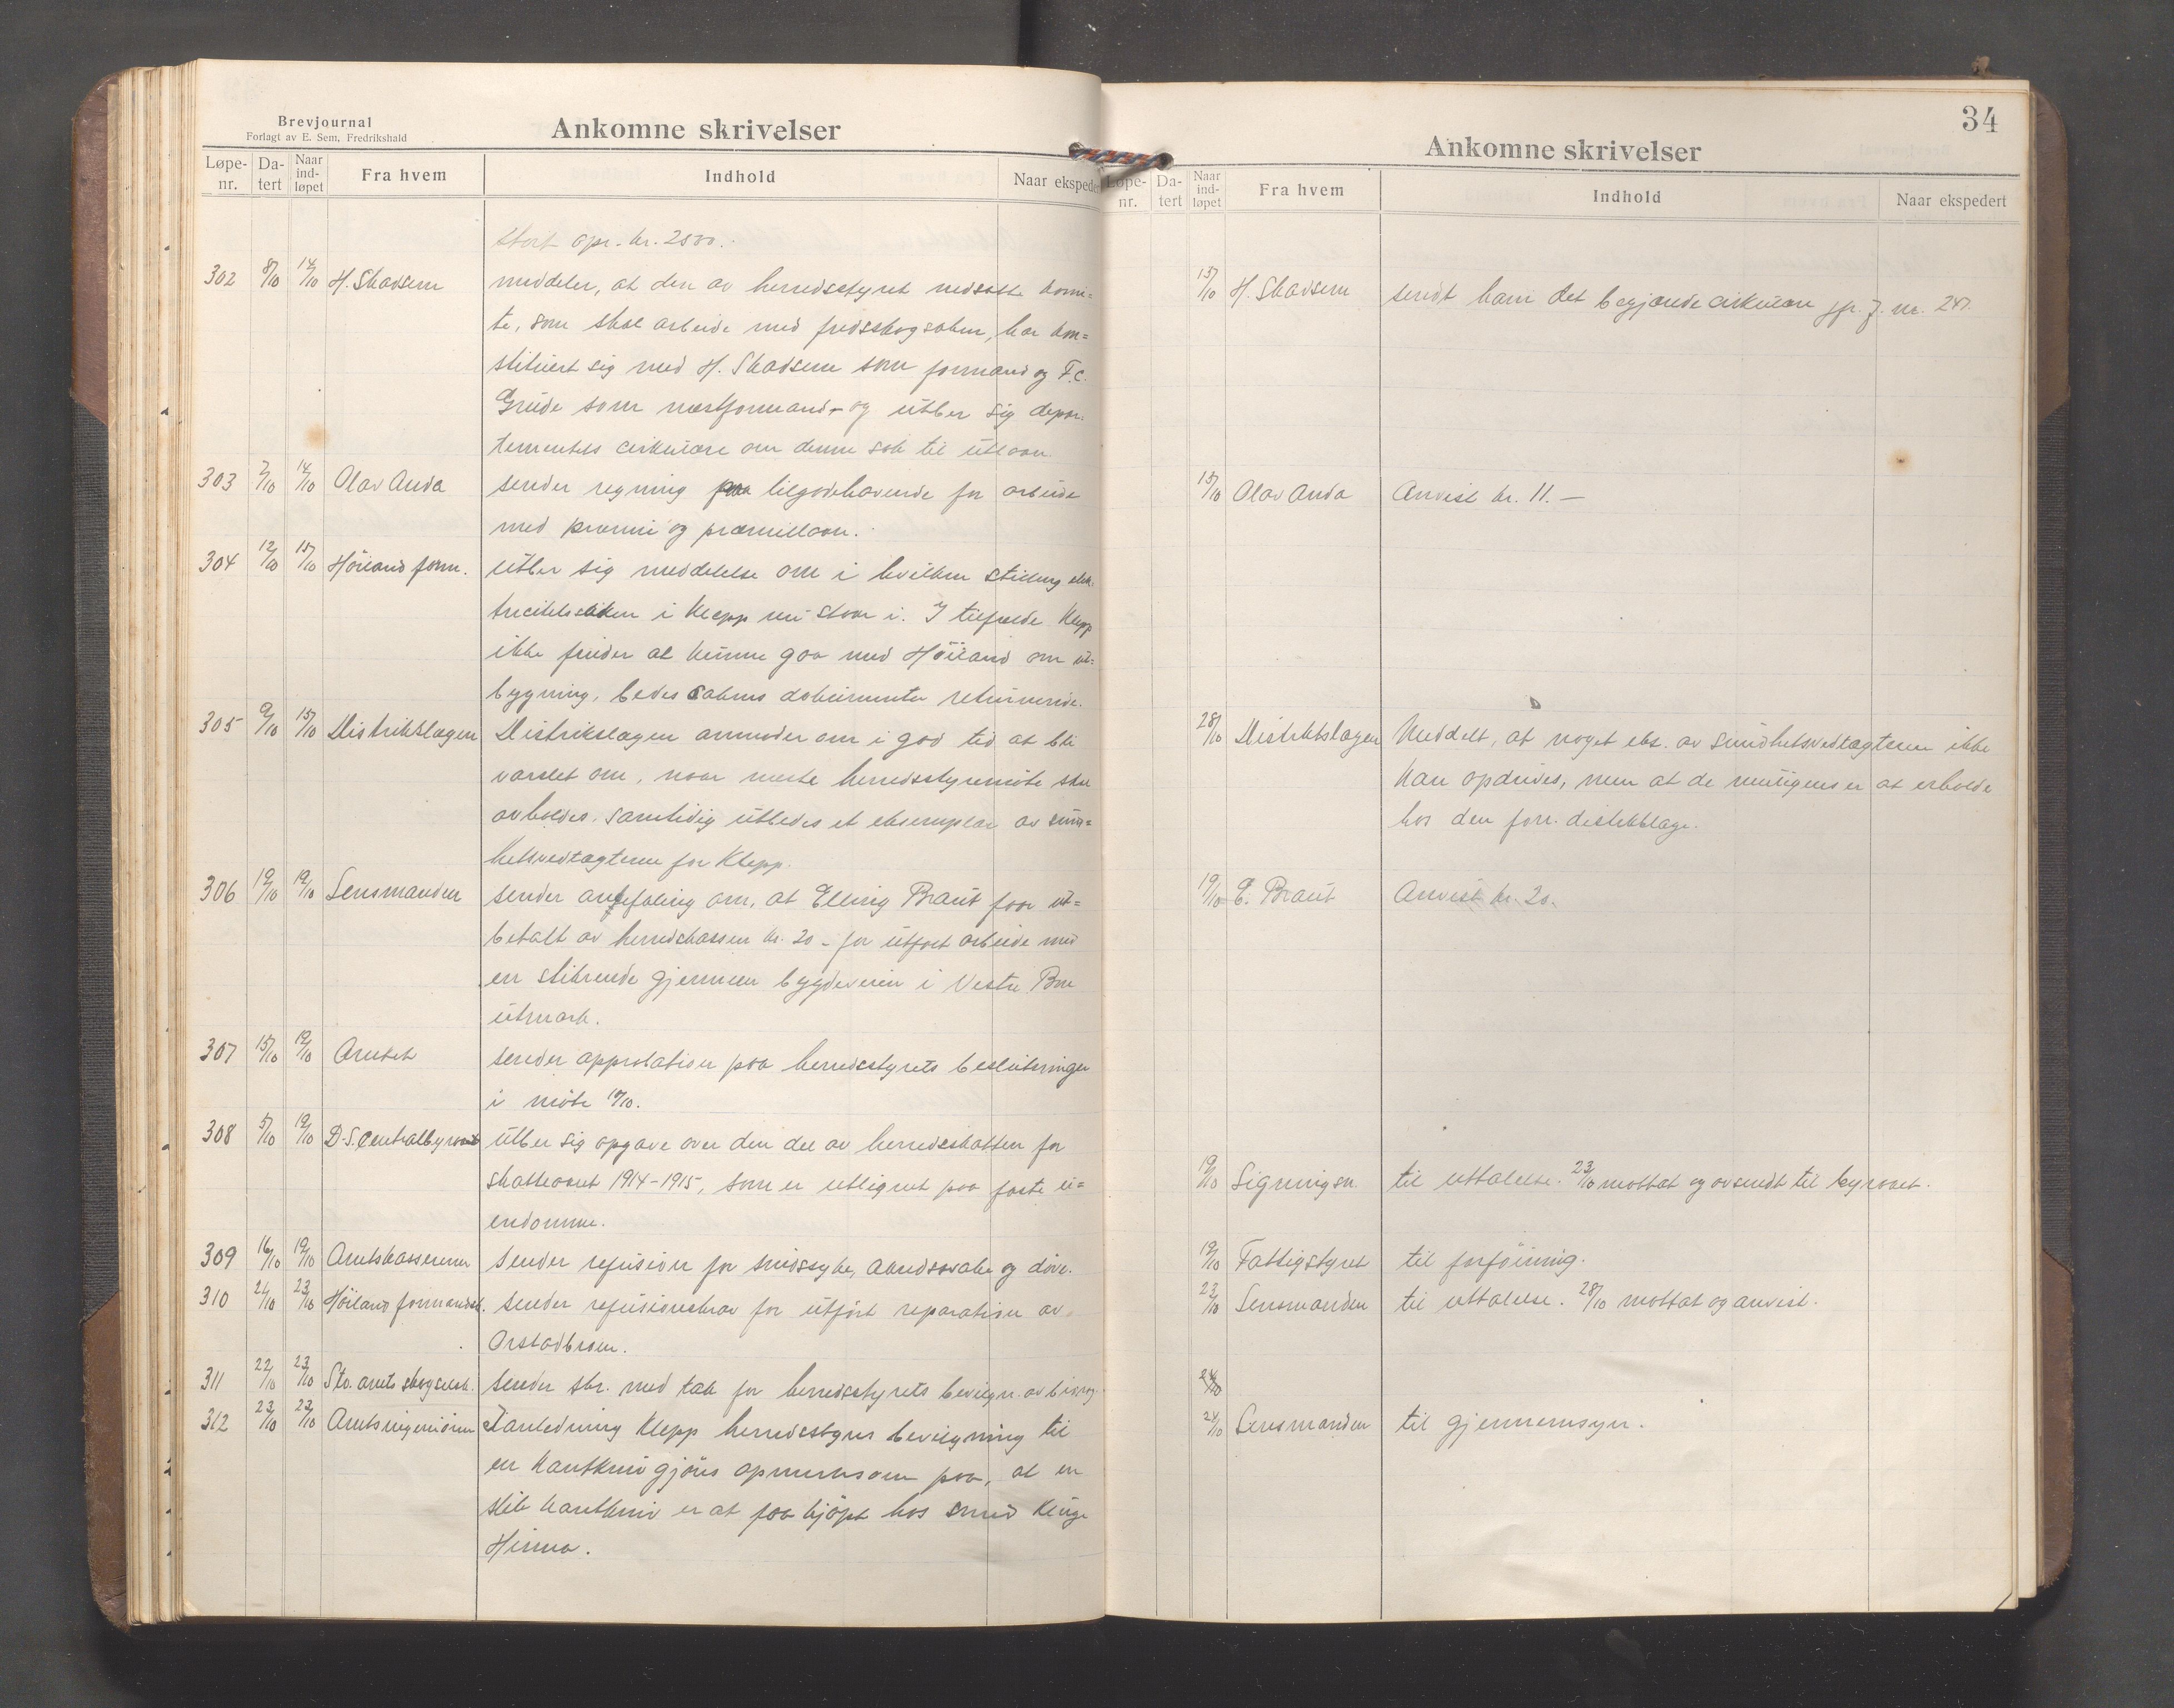 Brevjournal
Forlagt av E. Sem, Fredrikshald
Ankomne skrivelser
Løpe-nr. Da-tert Naar ind-løpet Fra hvem Indhold Naar ekspedert
stort opr. kr. 2500.
302 8/10 14/10 H. Skadsem meddeler, at den av herredsstyret nedsatte komi=
te, som skal arbeide med fredsskogsaken, har kon=
stituert sig med H. Skadsem som formand og F. C.
Grude som næstformand - og utber sig depar-
tementets cirkulære om denne sak til utlaan
303 7/10 14/10 Olav Anda sender regning paa tilgodehavende for arbeide
med præmie og præmielaan.
304 12/10 15/10 Höiland form. utber sig meddelelse om i hvilken stilling elek-
tricitetssaken i Klepp nu staar i. I tilfælde Klepp
ikke finder at kunne gaa med Höiland om ut=
bygning, bedes sakens dokumenter returnerede.
305 9/10 15/10 Distriktslægen Distrikslægen anmoder om i god tid at bli
varslet om, naar næste herredsstyremöte skal
avholdes. Samtidig utbedes et eksemplar av sund=
hetsvedtægterne for Klepp.
306 19/10 19/10 Lensmanden sender anbefaling om, at Elling Braut faar ut=
betalt av herredskassen kr. 20 - for utfört arbeide med
en stikrende gjennem bygdeveien i Vestre Bore
utmark.
307 15/10 19/10 Amtet sender approbation paa herredsstyrets beslutninger
i möte /10.
308 5/10 19/10 D. S. Centralbyraa utber sig opgave over den del av herredsskatten for
skatteaaret 1914-1915, som er utlignet paa faste ei=
endomme.
309 16/10 19/10 Amtskassereren Sender refusion for sindssyke, aandssvake og döve.
310 21/10 23/10 Höiland formandsk. sender refusionskrav for utfört reparation av
Orstadbroen.
311 22/10 23/10 Stv. amts skogselsk. sender skr. med tak for herredsstyrets bevilgn. av bidrag.
312 23/10 23/10 Amtsingeniören I anledning Klepp herredsstyres bevilgning til
en kantkniv gjöres opmerksom paa, at en
slik kantkniv er at faa kjöpt hos smed Kluge
Hinna.
34
Ankomne skrivelser
Løpe-nr. Da-tert Naar ind-løpet Fra hvem Indhold Naar ekspedert
15/10 H. Skadsem sendt ham det begjærede cirkulære jfr. J. nr. 247.
15/10 Olav Anda Anvist kr. 11.—
28/10 Distriktslægen Meddelt, at noget eks. av sundhetsvedtægterne ikke
kan opdrives, men at de muligens er at erholde
hos den forr. distriktslæge.
19/10 E. Braut Anvist kr. 20.
19/10 Ligningsn. til uttalelse. 23/10 mottat og avsendt til byraaet.
19/10 Fattigstyret til forföining.
23/10 Lensmanden til uttalelse. 28/10 mottat og anvist.
24/10
24/10 Lensmanden til gjennemsyn.